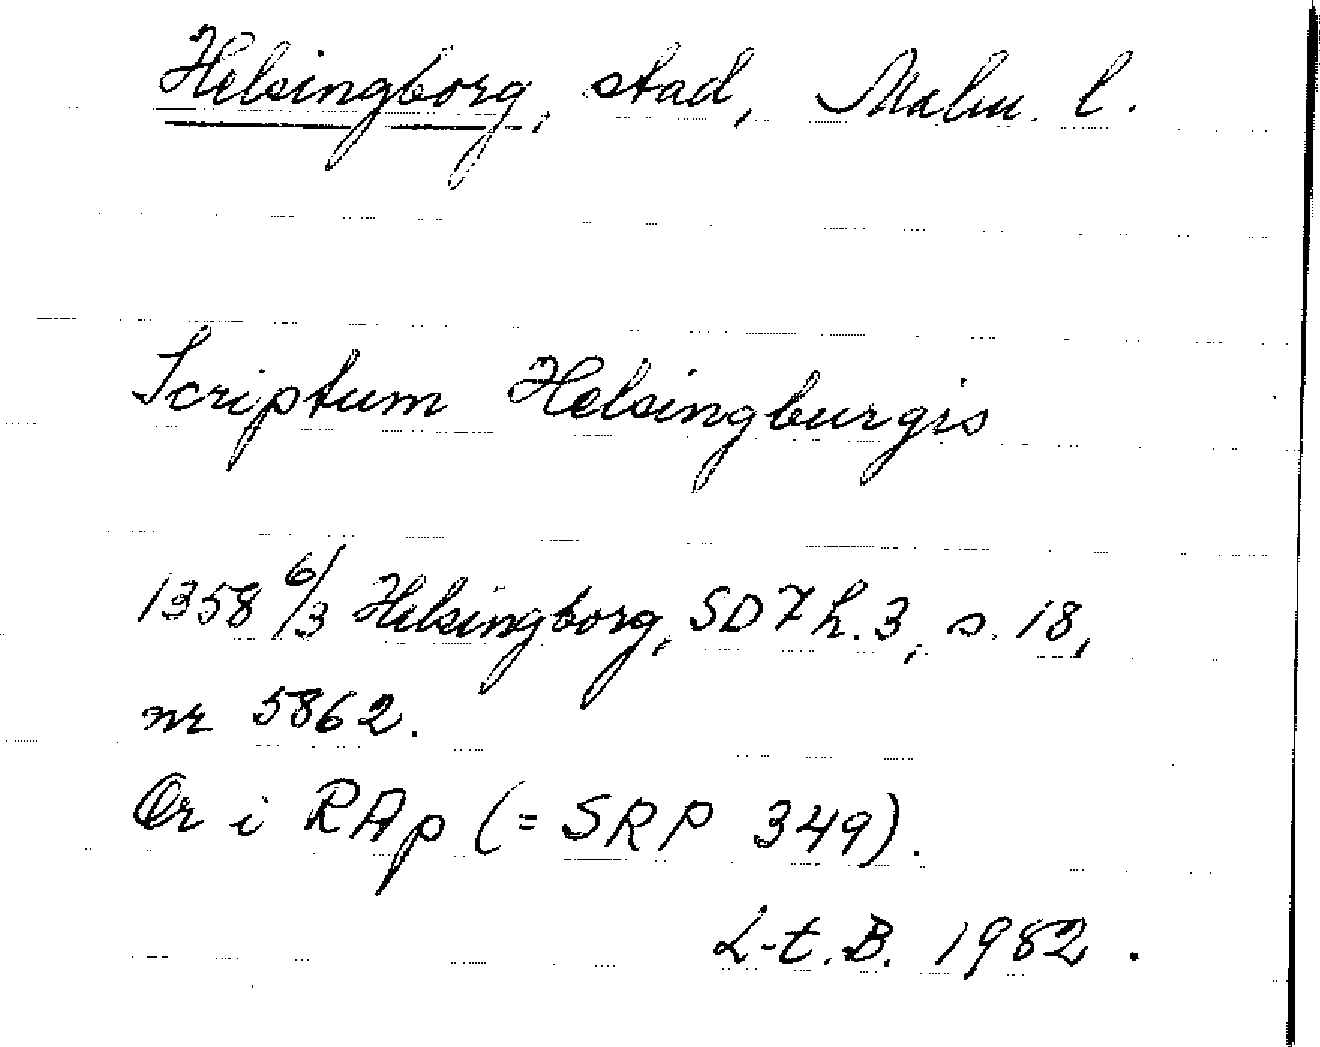 Helsingborg, stad, Malm. l.
Scriptum Helsingburgis
1358 6/3 Helsingborg, SD 7 h. 3, s. 18,
nr 5862.
Or i RAp (= SRP 349).
L-t. B. 1982.